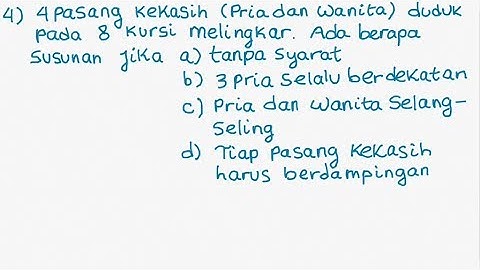 4) 4 pasang kekasih (Pria dan Wanita) duduk
pada 8 kursi melingkar. Ada berapa
susunan jika a) tanpa syarat
b) 3 pria selalu berdekatan
c) Pria dan wanita selang-
seling
d) Tiap pasang kekasih
harus berdampingan